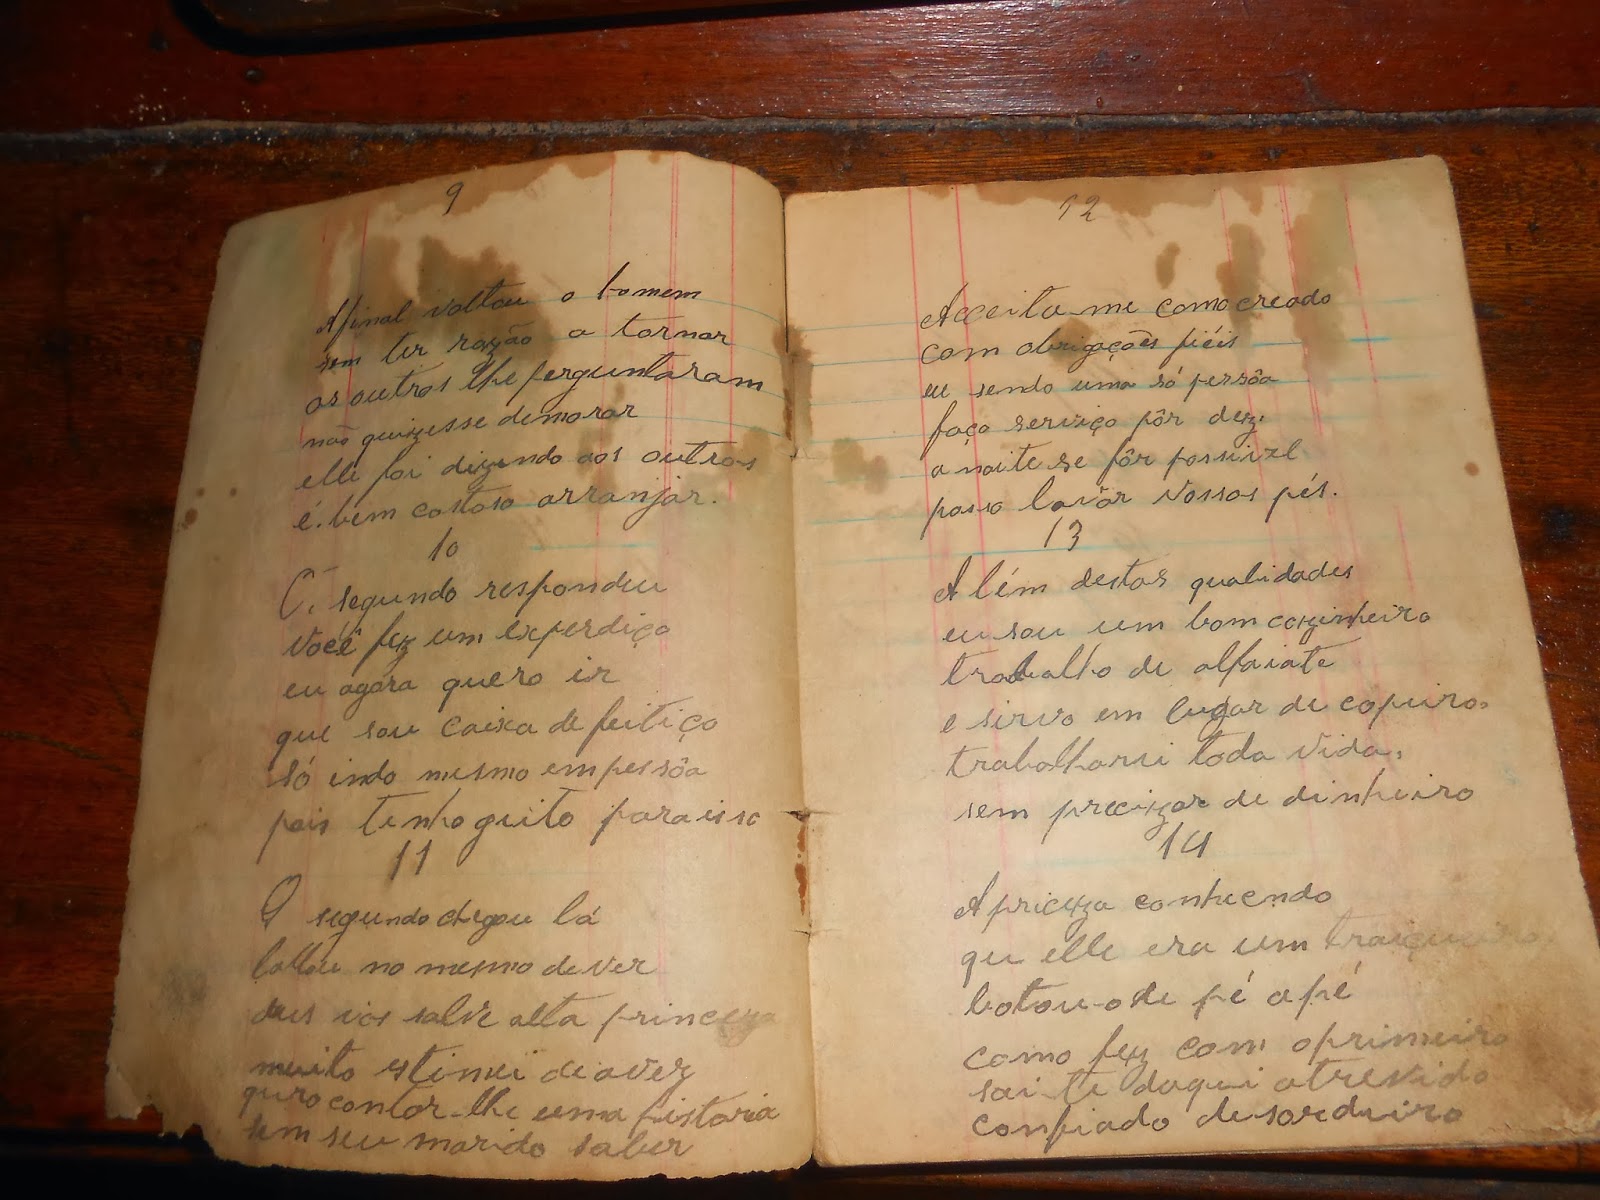 9
Afinal voltou o homem
sem ter razão a tornar
os outros lhe perguntaram
não quizesse demorar
elle foi dizendo aos outros
é. bem custoso arranjar.
10
O, segundo respondeu
você fez um experdiço
eu agóra quero ir
que sou caixa de feitiço
só indo mesmo em pessôa
pois tenho geito para isso
11
O segundo chegou lá
no mesmo dever
deus vos salve alta princeza
muito estimei de a vez
quro contar-lhe uma historia
sem seu marido saber
12
Acceita-me como creado
com obrigações fiéis
eu sendo uma só pessôa
faço serviço pôr dez.
a noite se fôr possivel
posso lavar vossos pés.
13
Além destas qualidades
eu sou um bom cozinheiro
trabalho de alfaiate
e sirvo em lugar de copeiro.
trabalharei toda vida,
sem precizar de dinheiro
14
A pricеza conhecendo
qu elle era um
botou-o de pé a pé
como fez com o primeiro
sai te daqui atrevido
confiado desordeiro